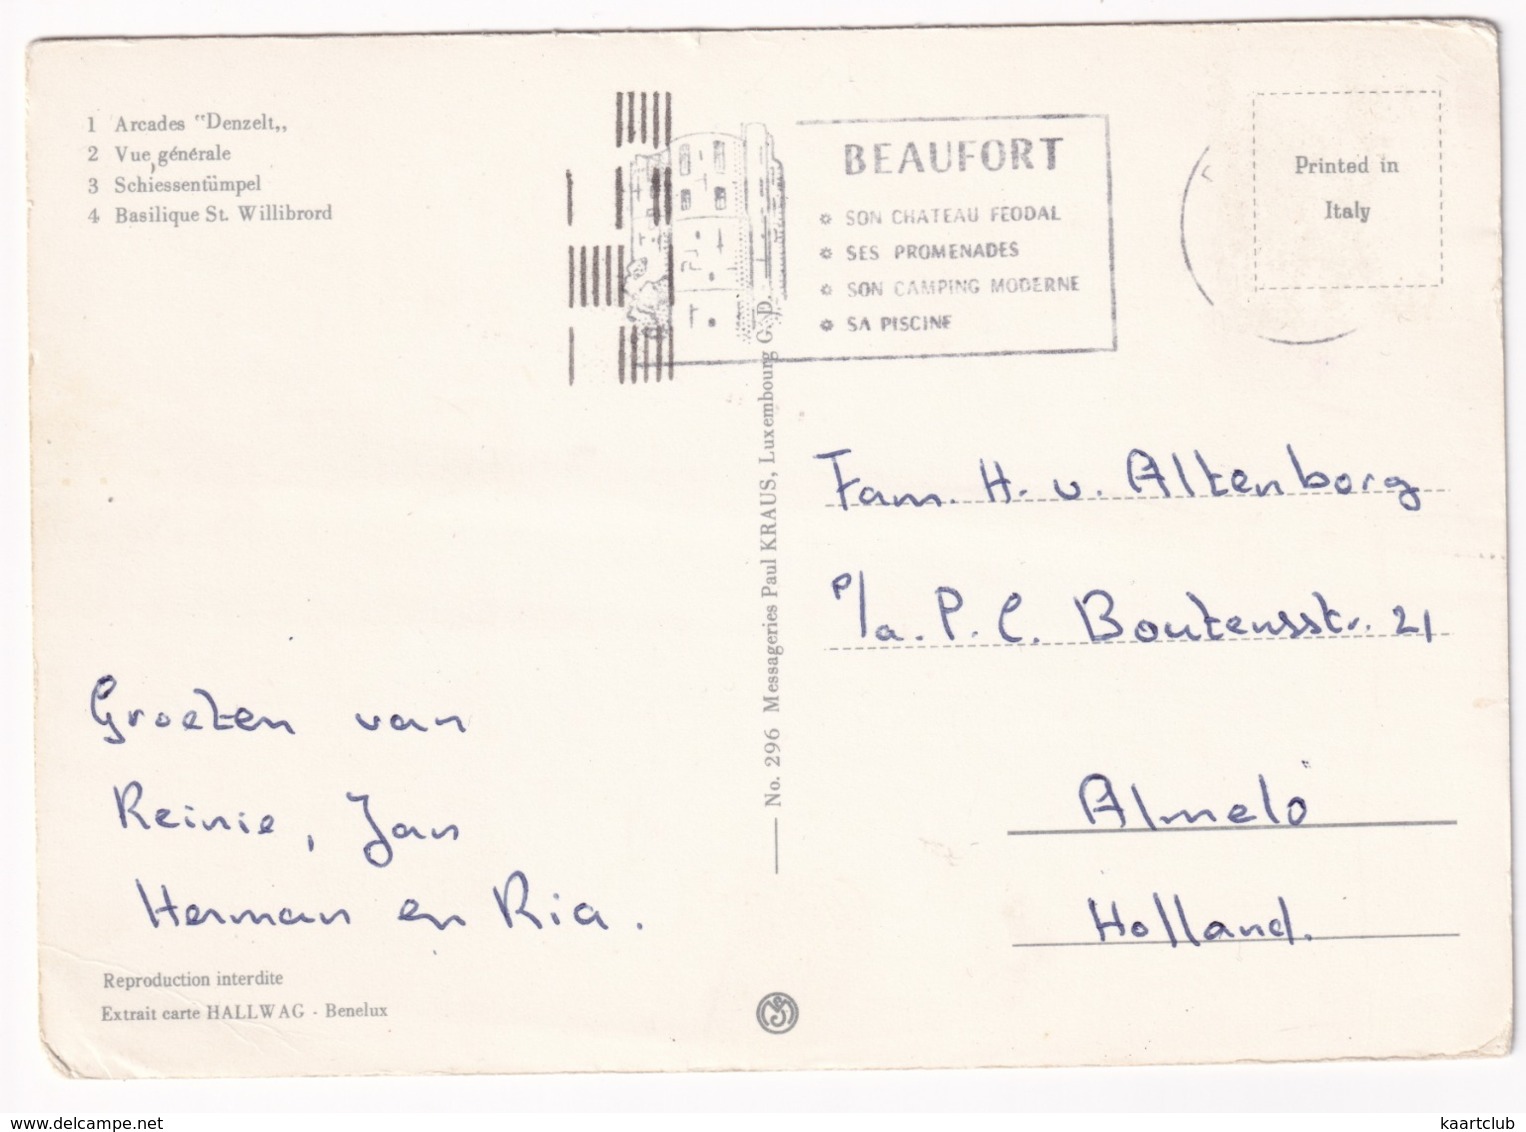 1 Arcades "Denzelt,,
2 Vue générale
3 Schiessentümpel
4 Basilique St. Willibrord
BEAUFORT
SON CHATEAU FEODAL
SES PROMENADES
SON CAMPING MODERNE
SA PISCINE
Printed in
Italy
No. 296 Messageries Paul KRAUS, Luxembourg G. D.
Fam. H. v. Altenborg
p/a. P. C. Boutensstr. 21
Almelo
Holland.
Groeten van
Reinie, Jan
Herman en Ria.
Reproduction interdite
Extrait carte HALLWAG - Benelux
www.delcampe.net
kaartclub